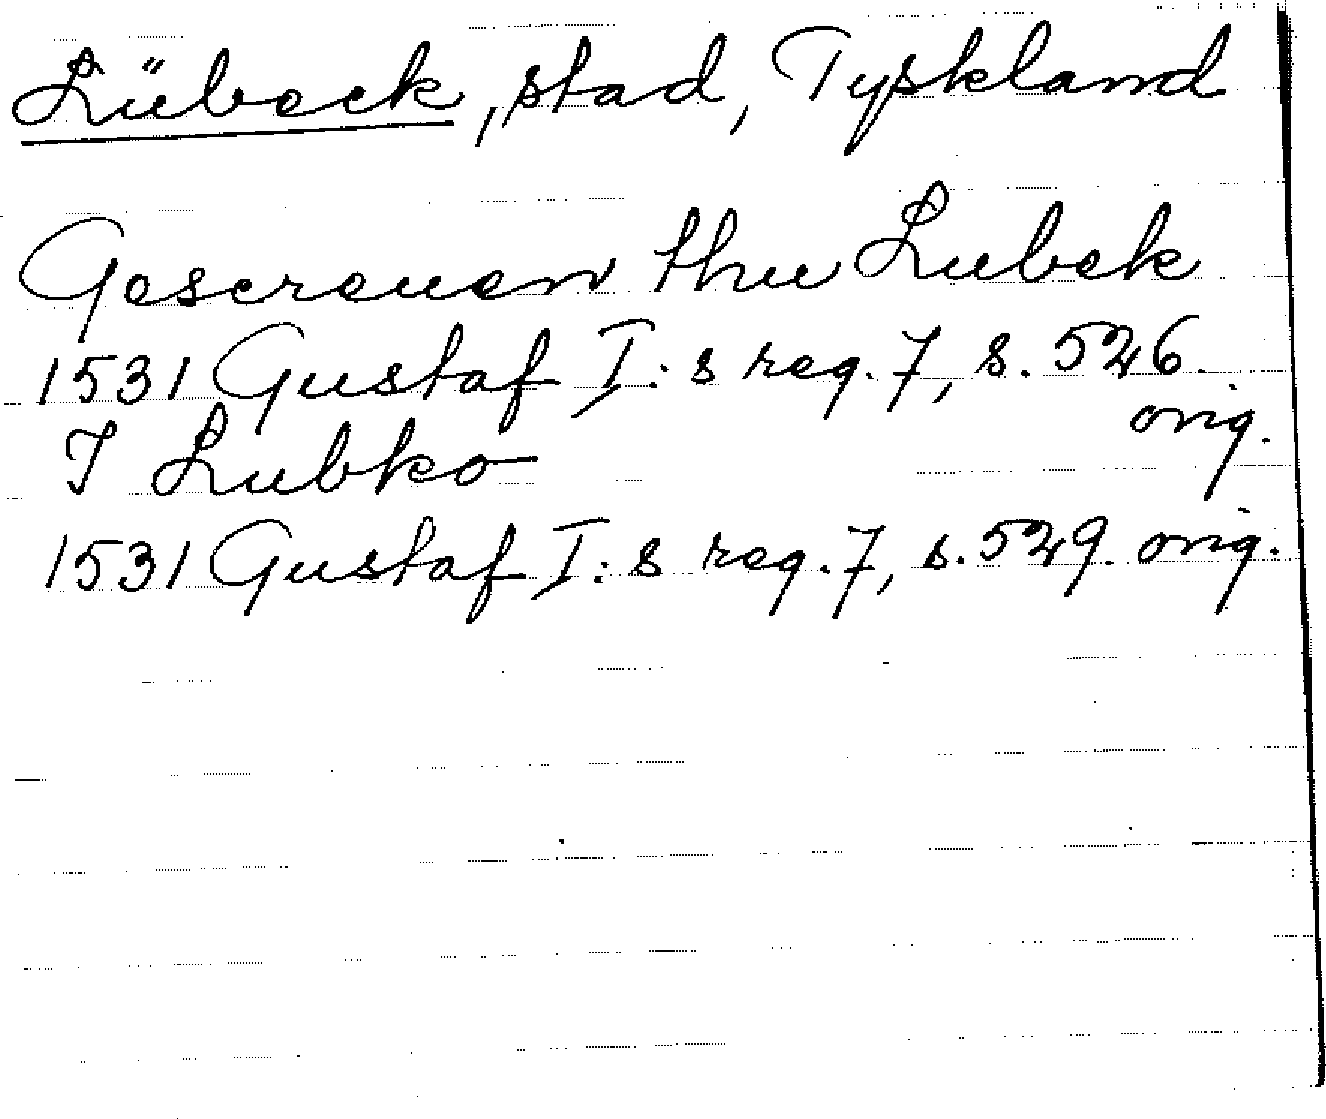 Lübeck, stad, Tyskland
Gescreuen thu Lubek
1531 Gustaf I:s reg. 7, s. 526.
orig.
I Lubko
1531 Gustaf I:s reg. 7, s. 529. orig.